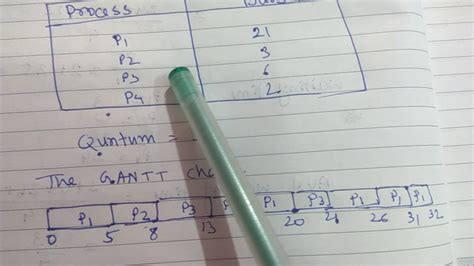 Process
P1 21
P2 3
P3 6
P4 2
Quntum =
The GANTT
P1 P2 P3 P1 P3 P1 P1 P1
0 5 8 13 20 21 26 31 32